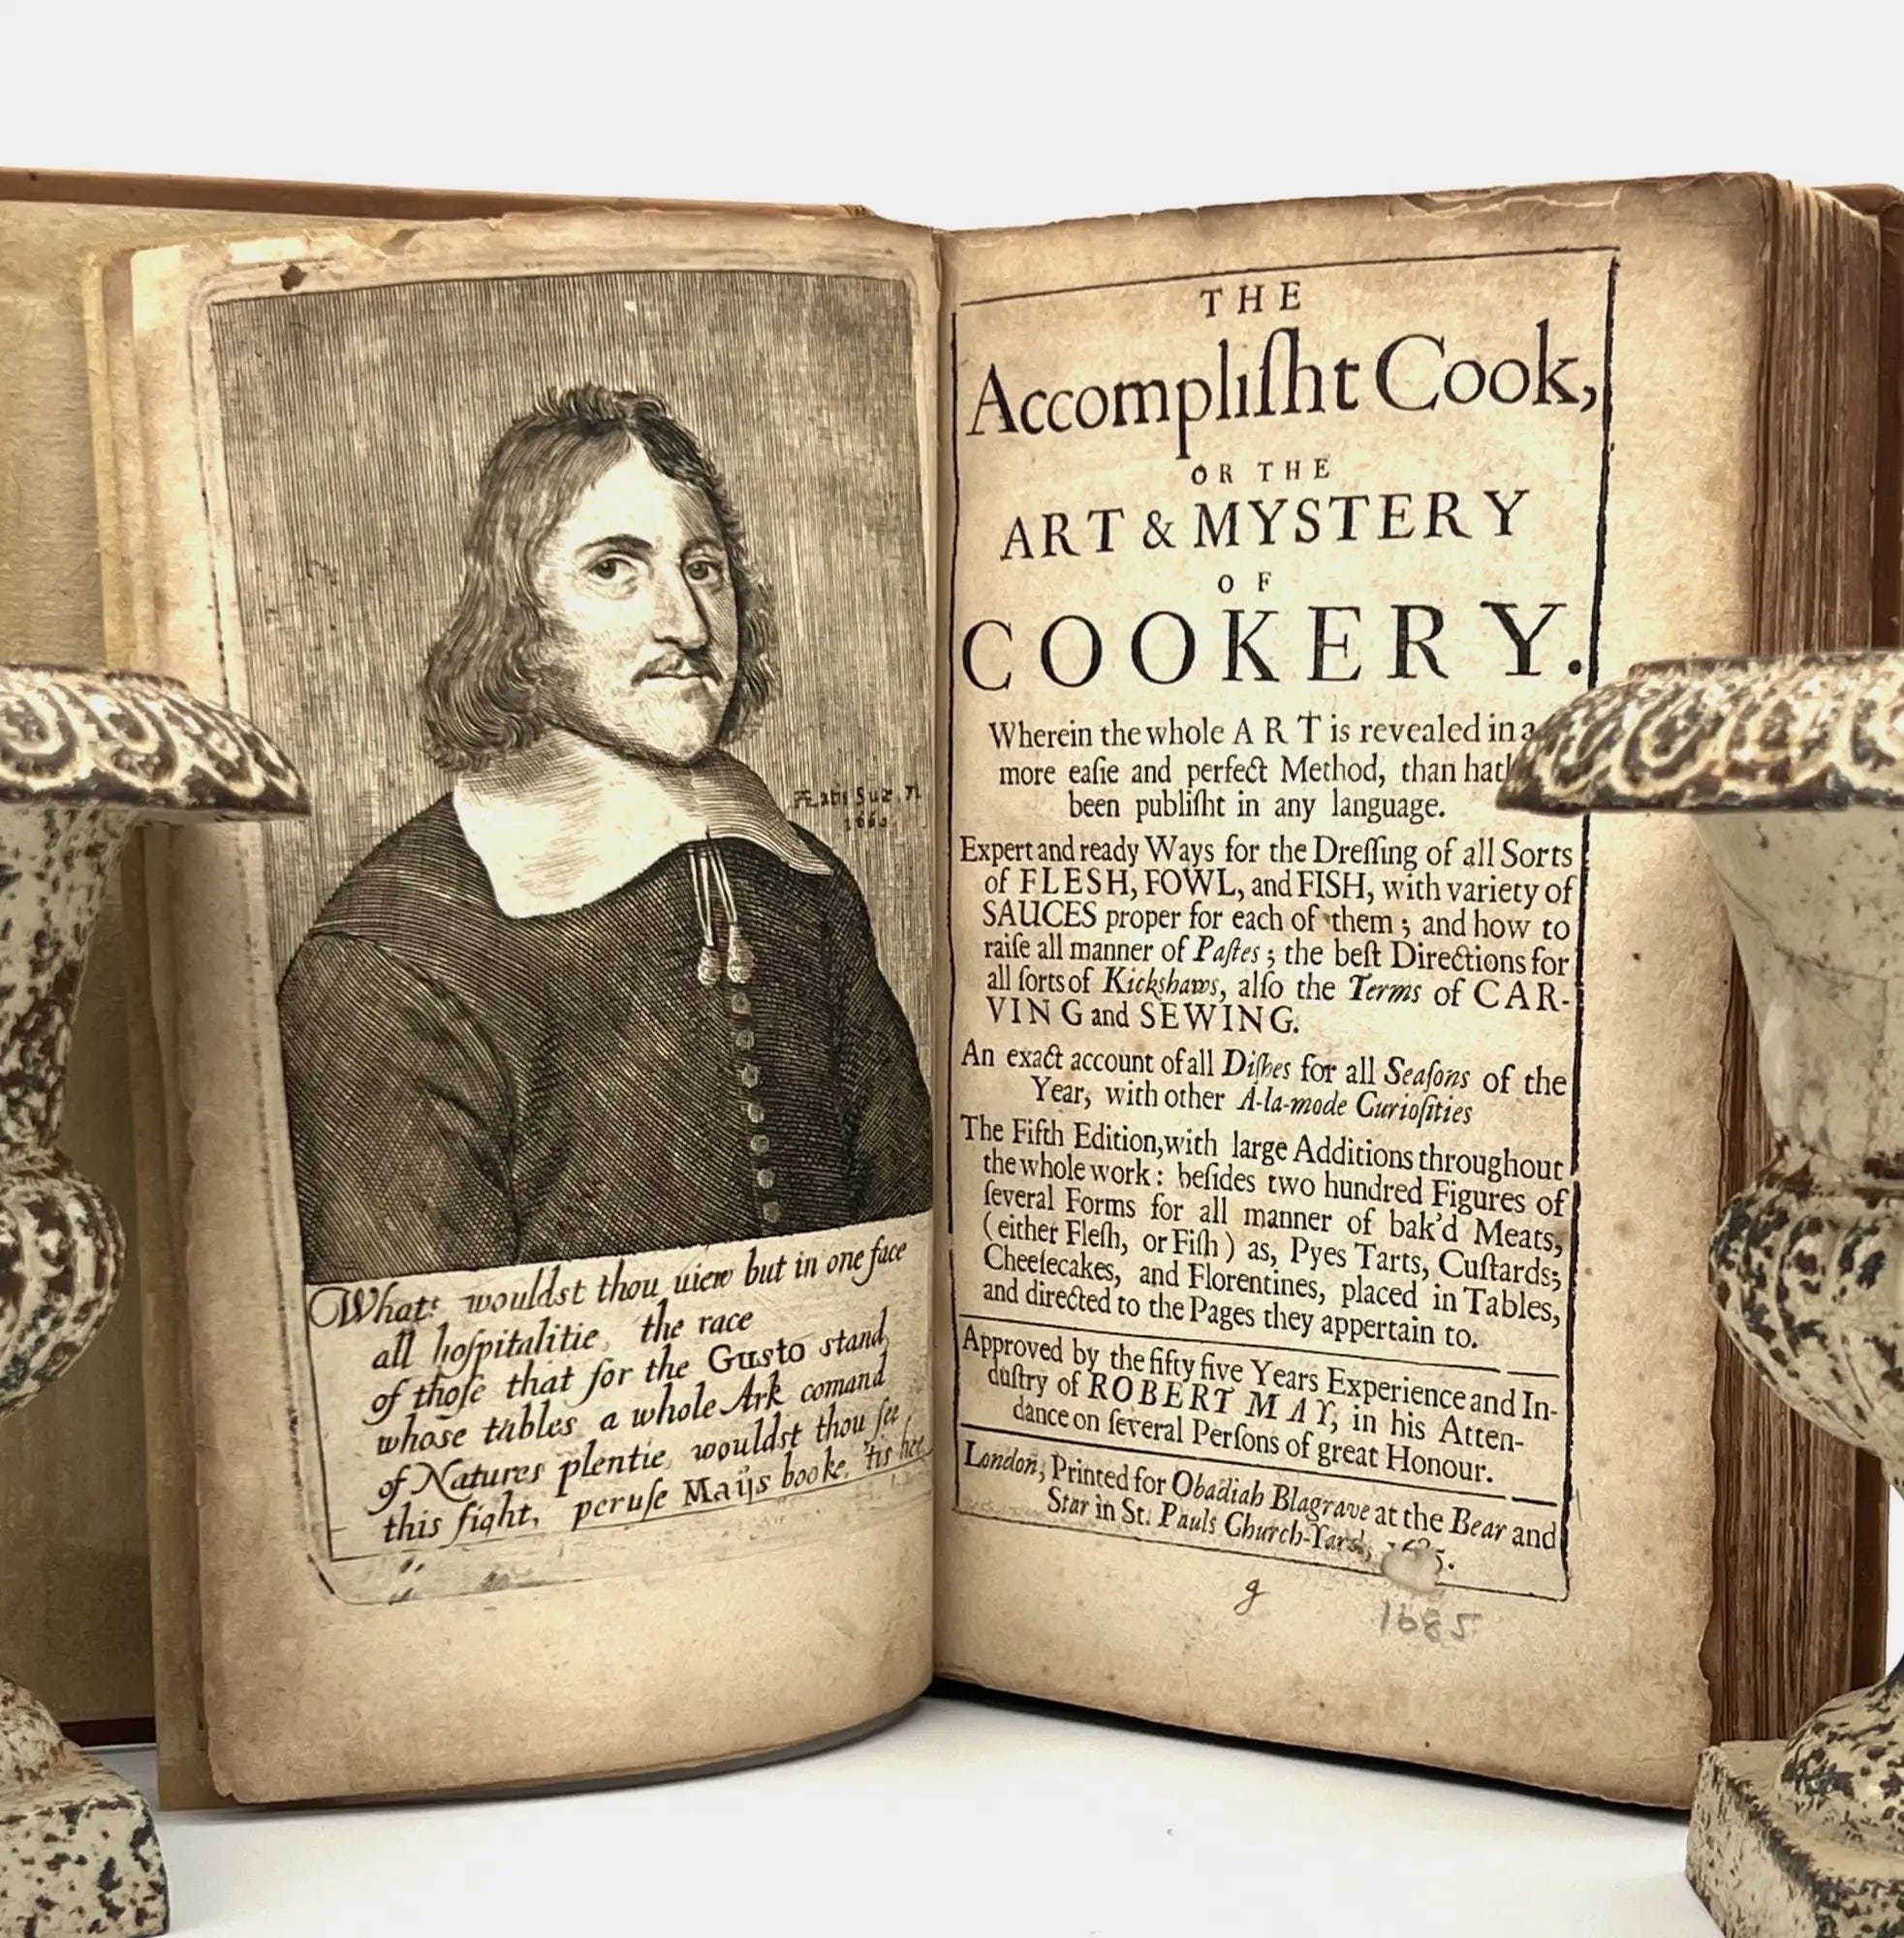 Ætatis Suæ. 71
166
What wouldst thou uiew but in one face
all hoſpitalitie, the race
of thoſe that for the Gusto stand,
whose tables a whole Ark comand
of Natures plentie, wouldst thou ſee
this ſight, peruſe Maijs booke, 'tis hee
THE
Accompliſht Cook,
OR THE
ART & MYSTERY
OF
COOKERY.
Wherein the whole ART is revealed in a
more eaſie and perfect Method, than hath
been publiſht in any language.
Expert and ready Ways for the Dreſſing of all Sorts
of FLESH, FOWL, and FISH, with variety of
SAUCES proper for each of them; and how to
raiſe all manner of Paſtes; the beſt Directions for
all ſorts of Kickshaws, alſo the Terms of CAR-
VING and SEWING.
An exact account of all Diſhes for all Seaſons of the
Year, with other A-la-mode Curioſities
The Fifth Edition, with large Additions throughout
the whole work: beſides two hundred Figures of
ſeveral Forms for all manner of bak'd Meats,
(either Fleſh, or Fiſh) as, Pyes Tarts, Cuſtards;
Cheeſecakes, and Florentines, placed in Tables,
and directed to the Pages they appertain to.
Approved by the fifty five Years Experience and In-
duſtry of ROBERT MAY, in his Atten-
dance on ſeveral Perſons of great Honour.
London, Printed for Obadiah Blagrave at the Bear and
Star in St. Pauls Church-Yard,
g
1685